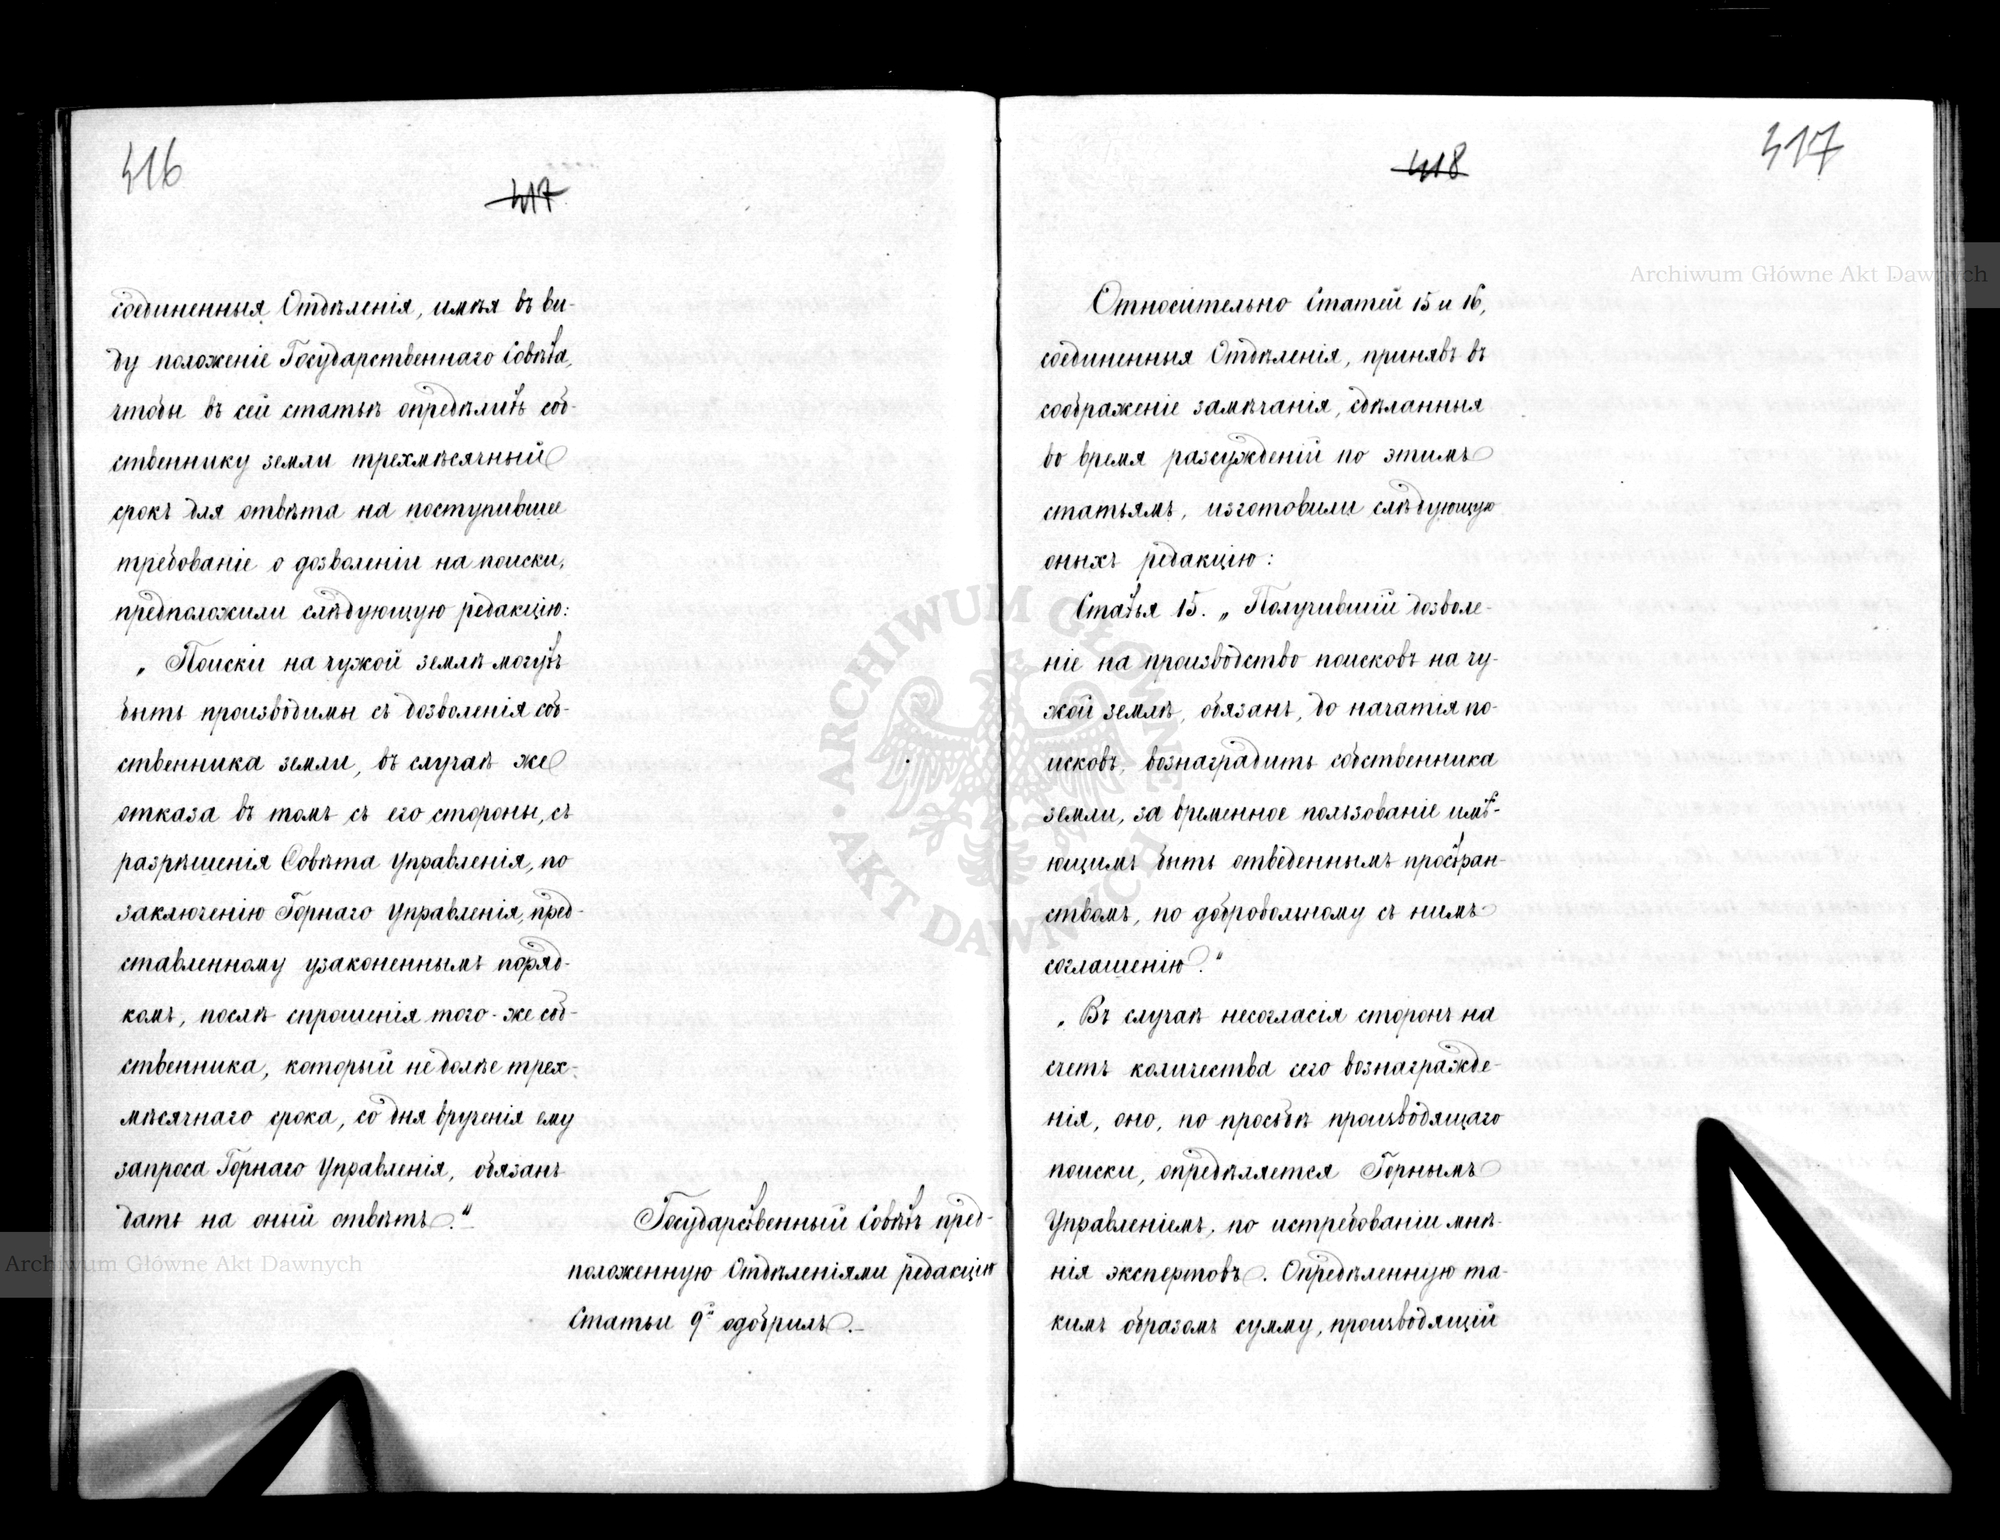 416
417
соединенныя Отдѣленія, имѣя въ ви-
ду положеніе Государственнаго Совѣта,
чтобы въ сей статьѣ опредѣлить соб-
ственнику земли трехмѣсячный
срокъ для отвѣта на поступившее
требованіе о дозволеніи на поиски,
предположили слѣдующую редакцію:
„Поиски на чужой землѣ могутъ
быть производимы съ дозволенія соб-
ственника земли, въ случаѣ же
отказа въ томъ съ его стороны, съ
разрѣшенія Совѣта Управленія, по
заключенію Горнаго Управленія, пред-
ставленному узаконеннымъ поряд-
комъ, послѣ спрошенія того-же соб-
ственника, который не долѣе трех-
мѣсячнаго срока, со дня врученія ему
запроса Горнаго Управленія, обязанъ
дать на оный отвѣтъ.“
Государственный Совѣтъ пред-
положенную Отдѣленіями редакцію
Статьи 9й одобрилъ.
417
418
Относительно Статей 15 и 16,
соединенныя Отдѣленія, принявъ въ
соображеніе замѣчанія, сдѣланныя
во время разсужденій по этимъ
статьямъ, изготовили слѣдующую
оныхъ редакцію:
Статья 15. „Получившій дозволе-
ніе на производство поисковъ на чу-
жой землѣ, обязанъ, до начатія по-
исковъ, вознаградить собственника
земли, за временное пользованіе имѣ-
ющимъ быть отведеннымъ простран-
ствомъ, по добровольному съ нимъ
соглашенію.“
„Въ случаѣ несогласія сторонъ на
счетъ количества сего вознагражде-
нія, оно, по просьбѣ производящаго
поиски, опредѣляется Горнымъ
Управленіемъ, по истребованіи мнѣ-
нія экспертовъ. Опредѣленную та-
кимъ образомъ сумму, производящій
Archiwum Główne Akt Dawnych
Archiwum Główne Akt Dawnych
ARCHIWUM GŁÓWNE AKT DAWNYCH